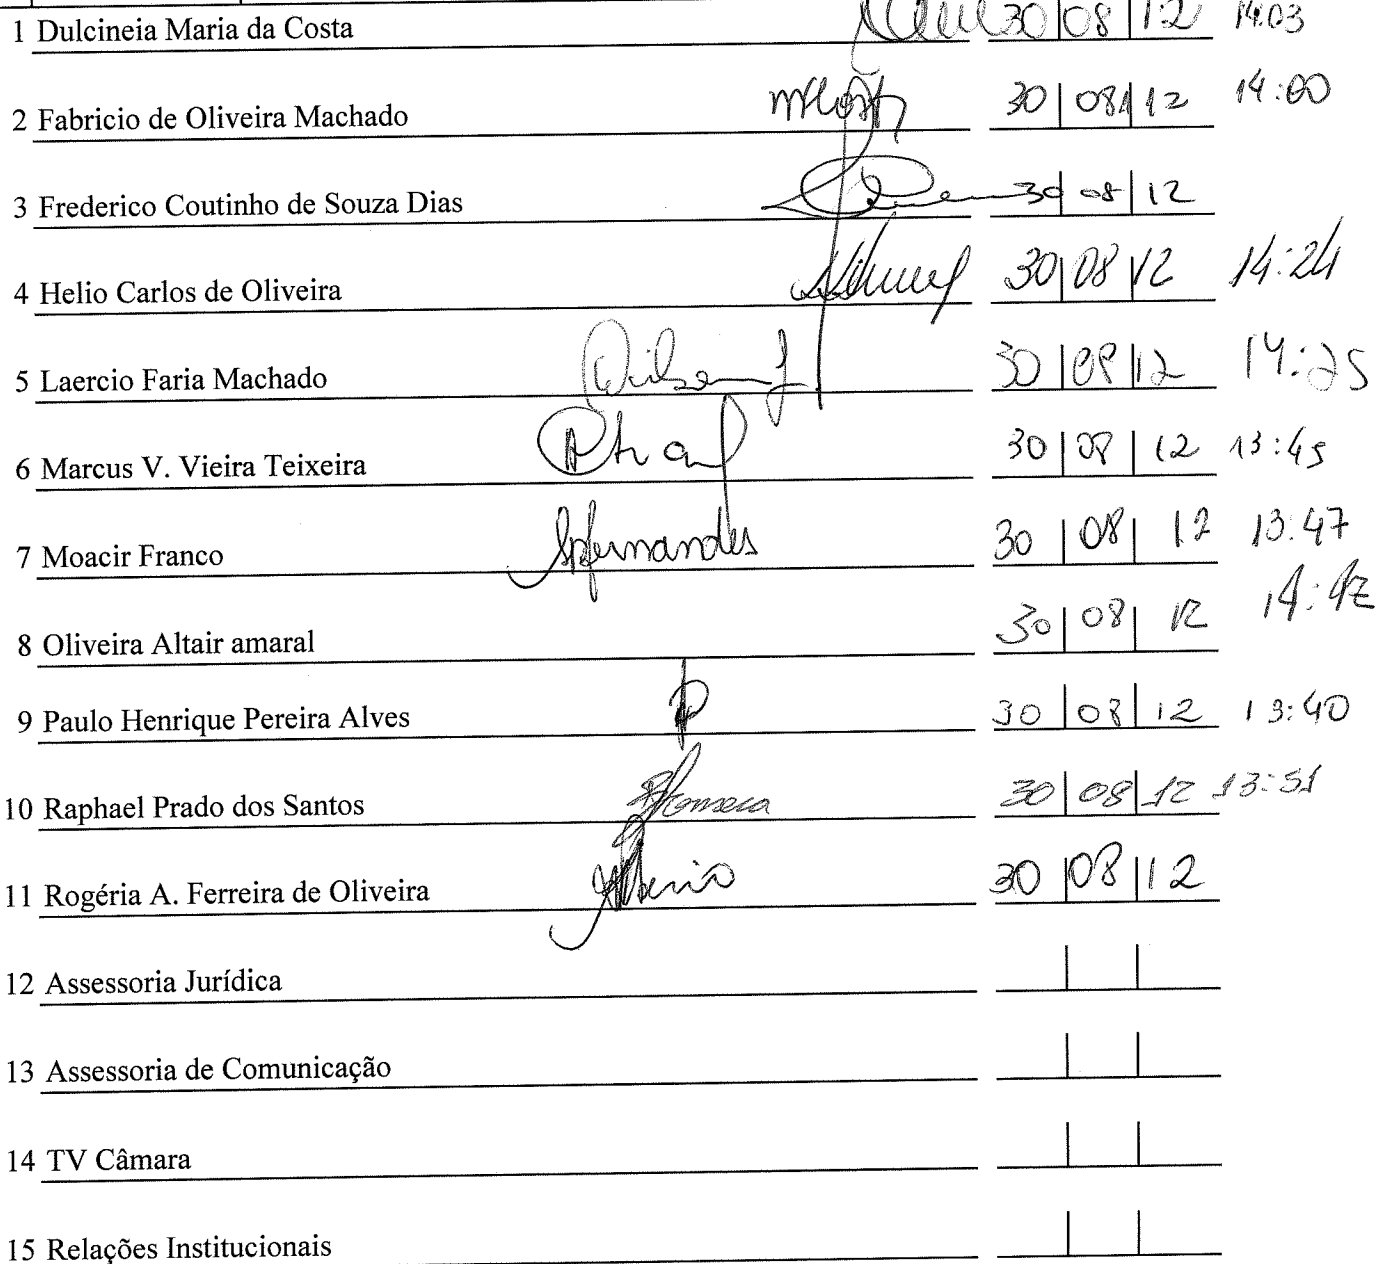 1 Dulcineia Maria da Costa 30 08 12 14:03
2 Fabricio de Oliveira Machado 30 08 12 14:00
3 Frederico Coutinho de Souza Dias 30 08 12
4 Helio Carlos de Oliveira 30 08 12 14:24
5 Laercio Faria Machado 30 08 12 14:25
6 Marcus V. Vieira Teixeira 30 08 12 13:45
7 Moacir Franco Spfernandes 30 08 12 13:47
8 Oliveira Altair amaral 30 08 12 14:42
9 Paulo Henrique Pereira Alves 30 08 12 13:40
10 Raphael Prado dos Santos 30 08 12 13:51
11 Rogéria A. Ferreira de Oliveira 30 08 12
12 Assessoria Jurídica
13 Assessoria de Comunicação
14 TV Câmara
15 Relações Institucionais